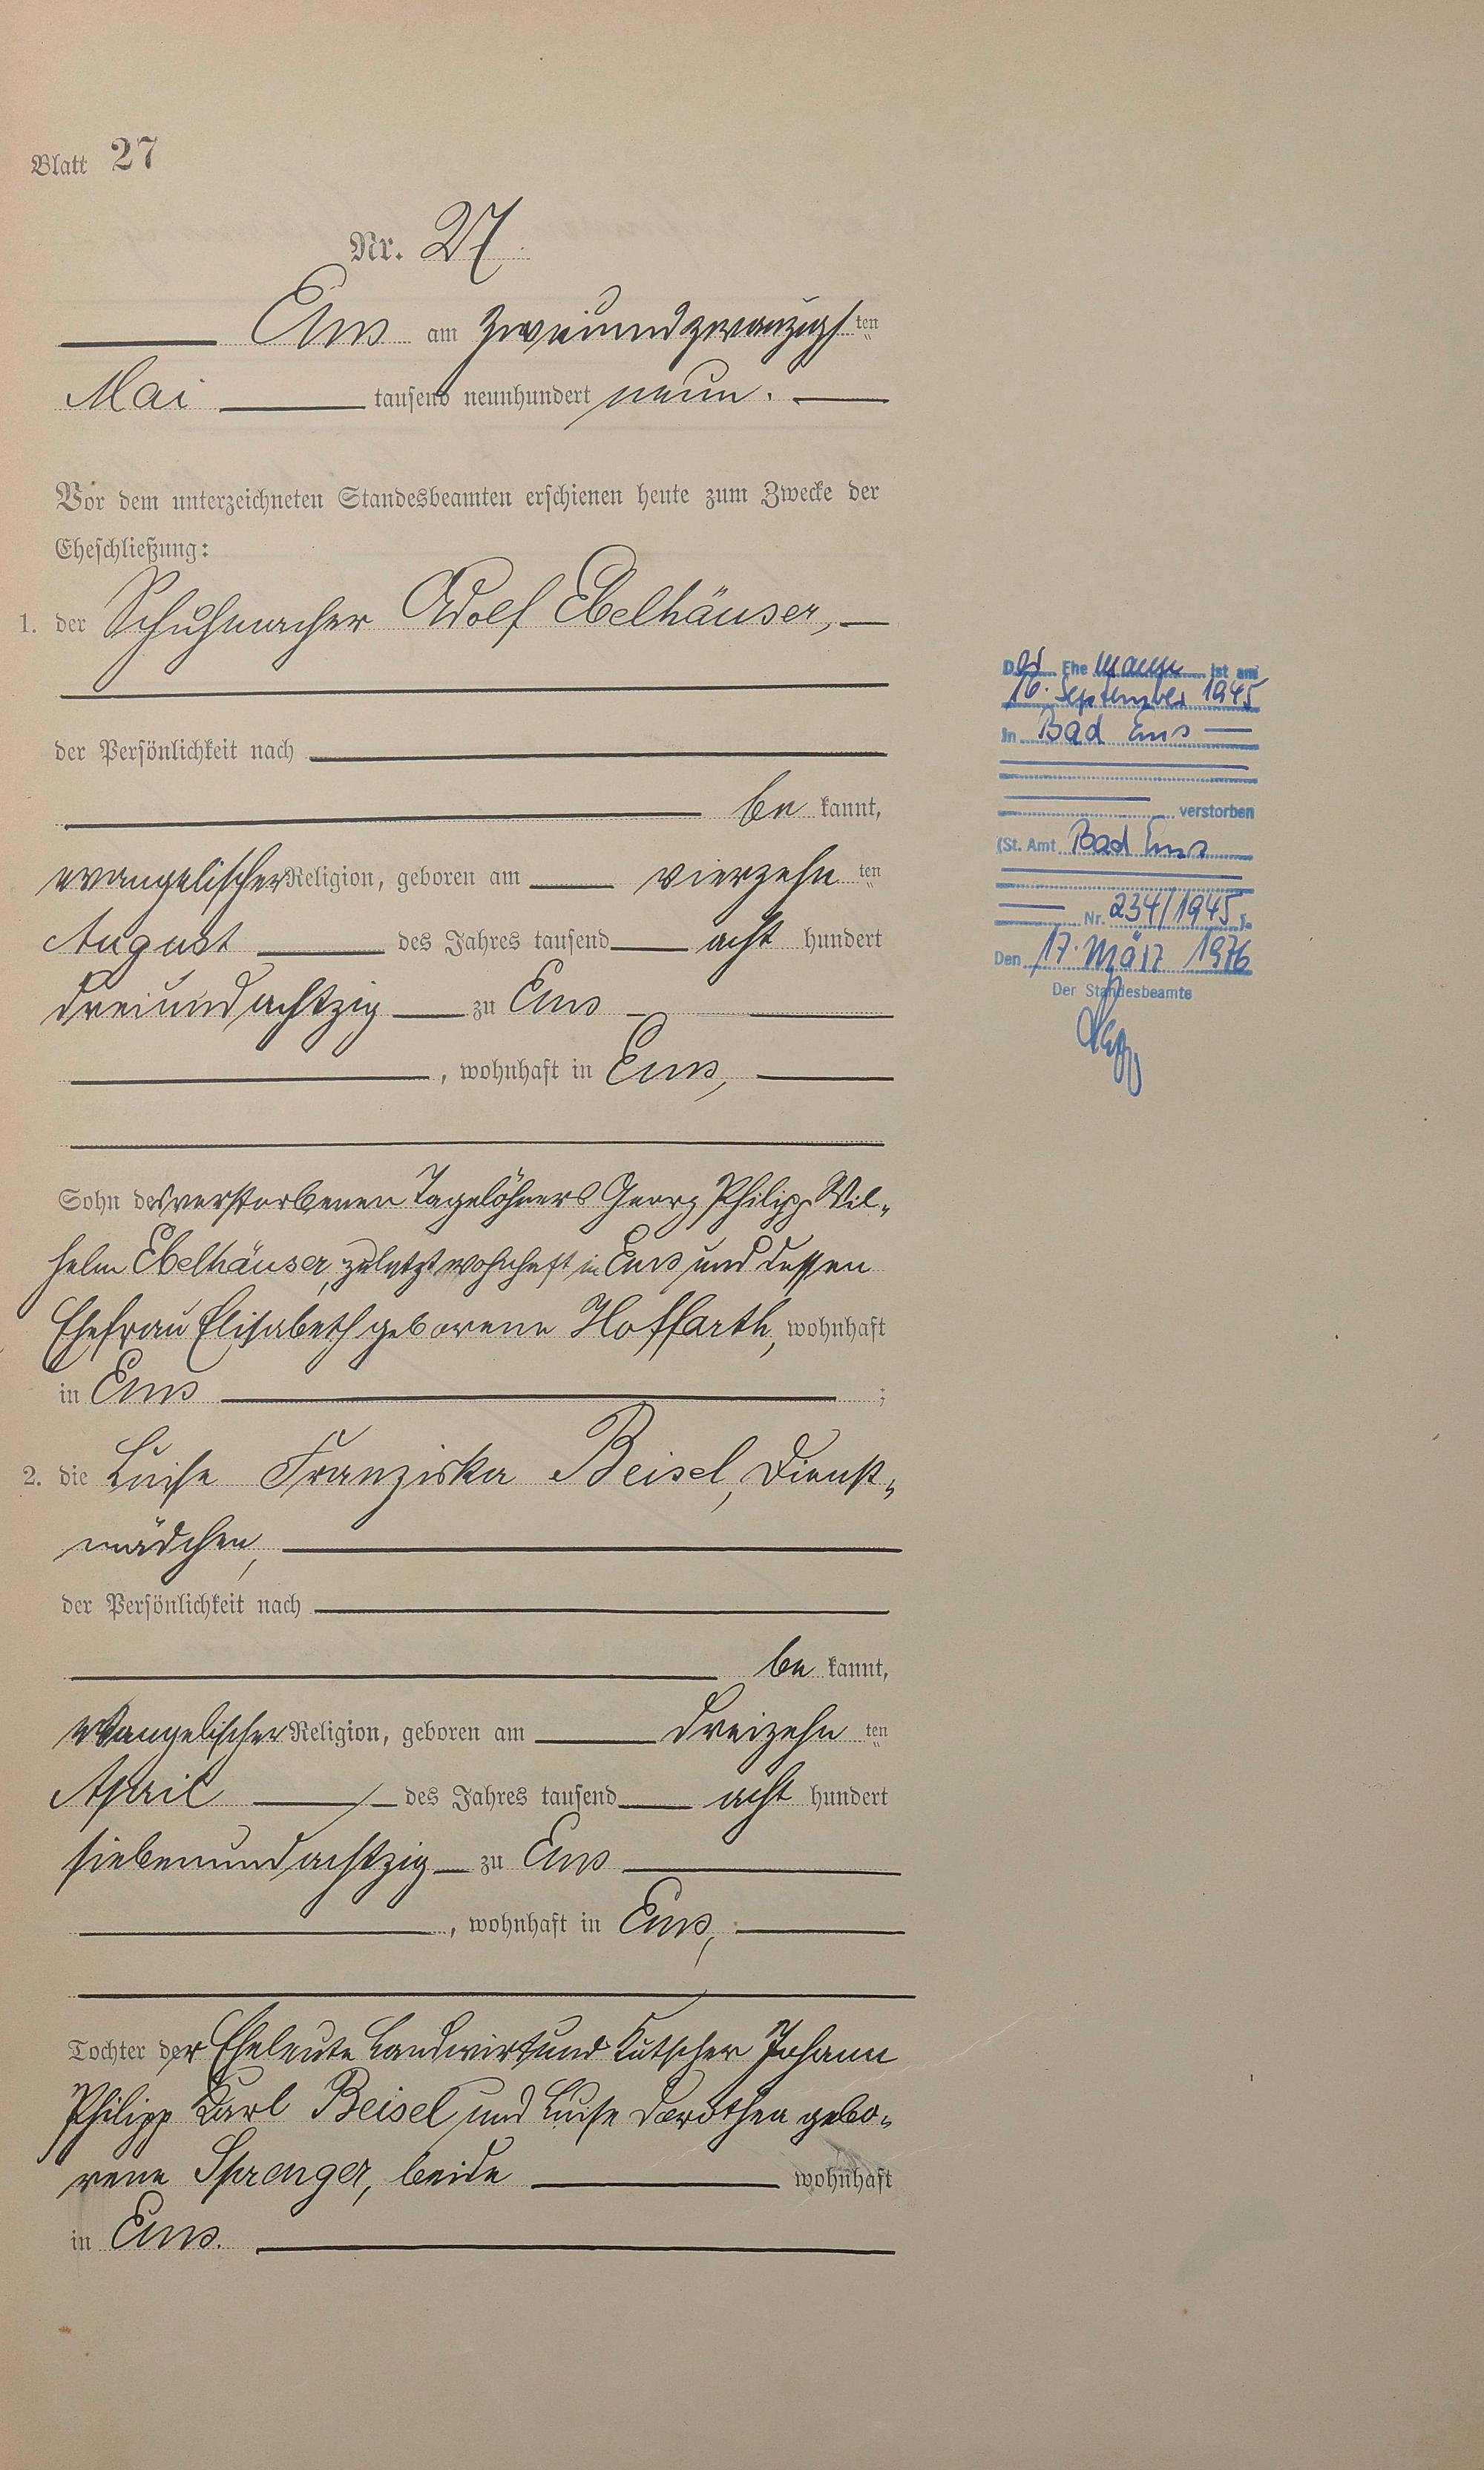 Blatt 27
Nr. 27
Ems am zweiundzwanzigsten
Mai tausend neunhundert neun.
Vor dem unterzeichneten Standesbeamten erschienen heute zum Zwecke der
Eheschließung:
1. der Schuhmacher Adolf Ebelhäuser,
der Persönlichkeit nach
be kannt,
evangelischer Religion, geboren am vierzehn ten
August des Jahres tausend acht hundert
dreiundachtzig zu Ems
, wohnhaft in Ems,
Sohn des verstorbenen Tagelöhners Georg Philipp Wil-
helm Ebelhäuser, zuletzt wohnhaft in Ems und dessen
Ehefrau Elisabeth geborene Hoffarth, wohnhaft
in Ems ;
2. die Luise Franziska Beisel, Dienst-
mädchen,
der Persönlichkeit nach
be kannt,
evangelischer Religion, geboren am dreizehn ten
April des Jahres tausend acht hundert
siebenundachtzig zu Ems
, wohnhaft in Ems,
Tochter der Eheleute Landwirt und Kutscher Johann
Philipp Karl Beisel und Luise Dorothea gebo-
rene Sprenger, beide wohnhaft
in Ems.
Der Ehe mann ist am
16. September 1945
in Bad Ems
verstorben
(St. Amt Bad Ems
Nr. 234/1945).
Den 17. März 1976
Der Standesbeamte